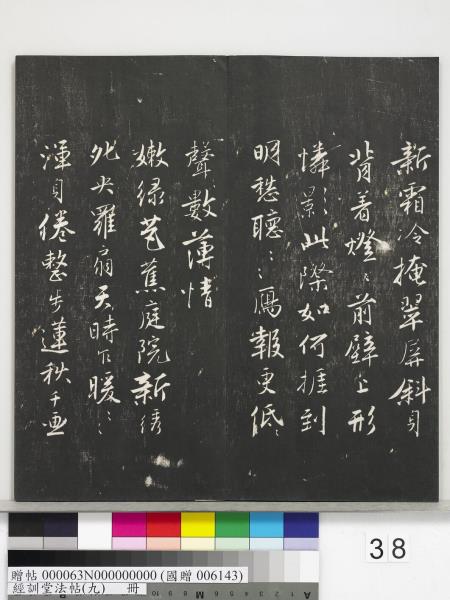 新霜冷掩翠屏斜身
背着燈〻前壁上形
憐影此際如何捱到
明愁聽〻鴈報更低〻
聲數薄情
嫩綠芭蕉庭院新綉
夗央羅扇天時乍暖〻
渾身倦整步蓮秋千画
38
贈帖 000063N000000000 (國贈 006143)
經訓堂法帖(九) 冊